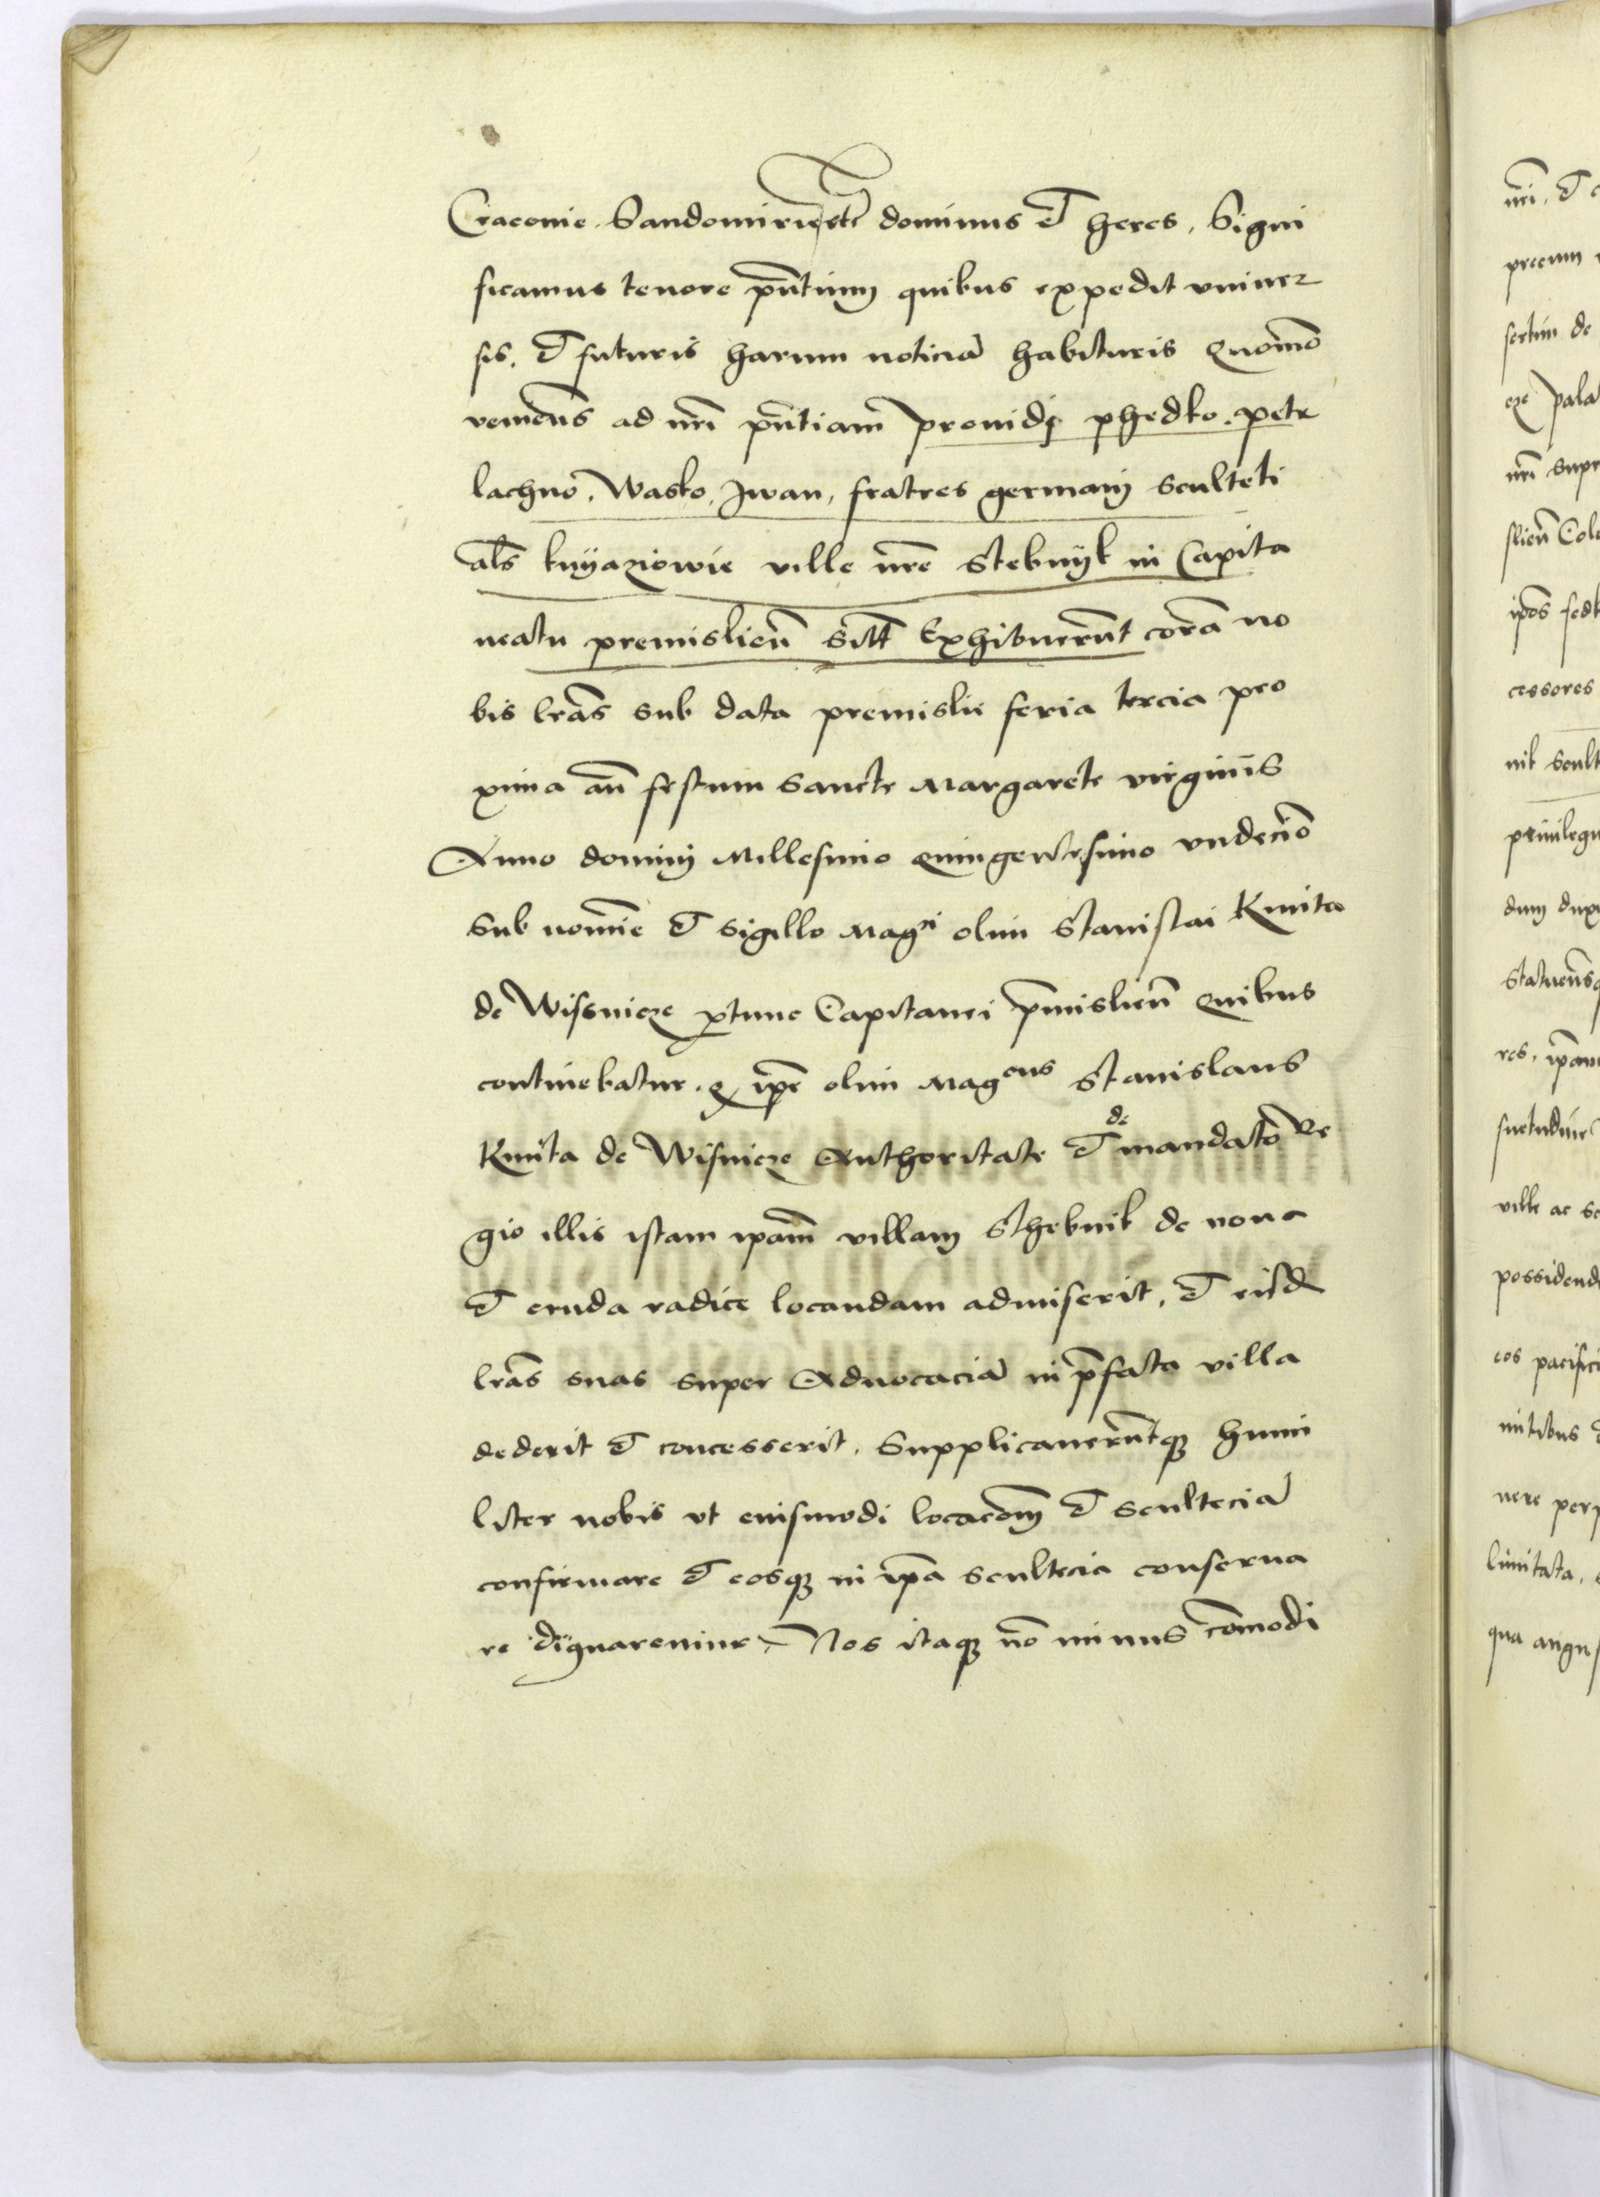 Cracovie. Sandomirie etc dominus et heres. Signi
ficamus tenore pñtium quibus expedit univer
sis. et futuris harum noticiã habituris Quomõ
veniens ad nrã pñtiam providi phedko. petr
lachno, Wasko, Iwan, fratres germanij sculteti
als knyaziowie ville nre Stebnyk in Capita
neatu premislien sitt Exhibuerunt corã no
bis lrãs sub data premislie feria tercia pro
xima an festum Sancte Margarete virginis
Anno dominj Millesimo quingentesimo undecimo
Sub nomine et sigillo Magci olim Stanislai Kmita
de Wissnicze extunc Capitanei pmislien Quibus
continebatur. q ipe olim Magcus Stanislaus
Kmita de Wisnicze Authoritate et de mandato Re
gio illis istam ipam villam Sthebnik de nova
et cruda radice locandam admiserit, et eisd
lrãs suas super Advocaciã in pfata villa
dederit et concesserit. Supplicaveruntq humi
liter nobis ut eiusmodi locacõm et sculteciã
confirmare et eosq in ipa scultecia conserva
re dignaremur. Nos itaq nõ minus cõmodi
nri, et
precum
sertim de
cze pala
nri supr
slien
ipos fedk
cessores
nik scult
privilegiu
dum dux
statuens
res, ipam
suetudine
ville ac sc
possidend
eos pacific
mitibus
nere perp
limitata,
qua angu